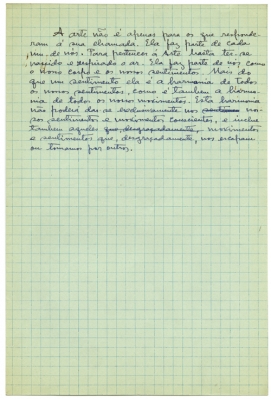 A arte não é apenas para os que responde-
ram á sua chamada. Ela faz parte de cada
um de nós. Para pertencer á Arte basta ter-se
nascido e respirado o ar. Ela faz parte de nós, como
o nosso corpo e os nossos sentimentos. Mais do
que um sentimento ela é a harmonia de todos
os nossos sentimentos, como é tambem a harmo-
nia de todos os nossos movimentos. Esta harmonia
não poderá dar-se exclusivamente nos nos-
sos sentimentos e movimentos conscientes, e inclue
tambem aqueles que, desgraçadamente, movimentos
e sentimentos que, desgraçadamente, nos escapam
ou tomamos por outros.